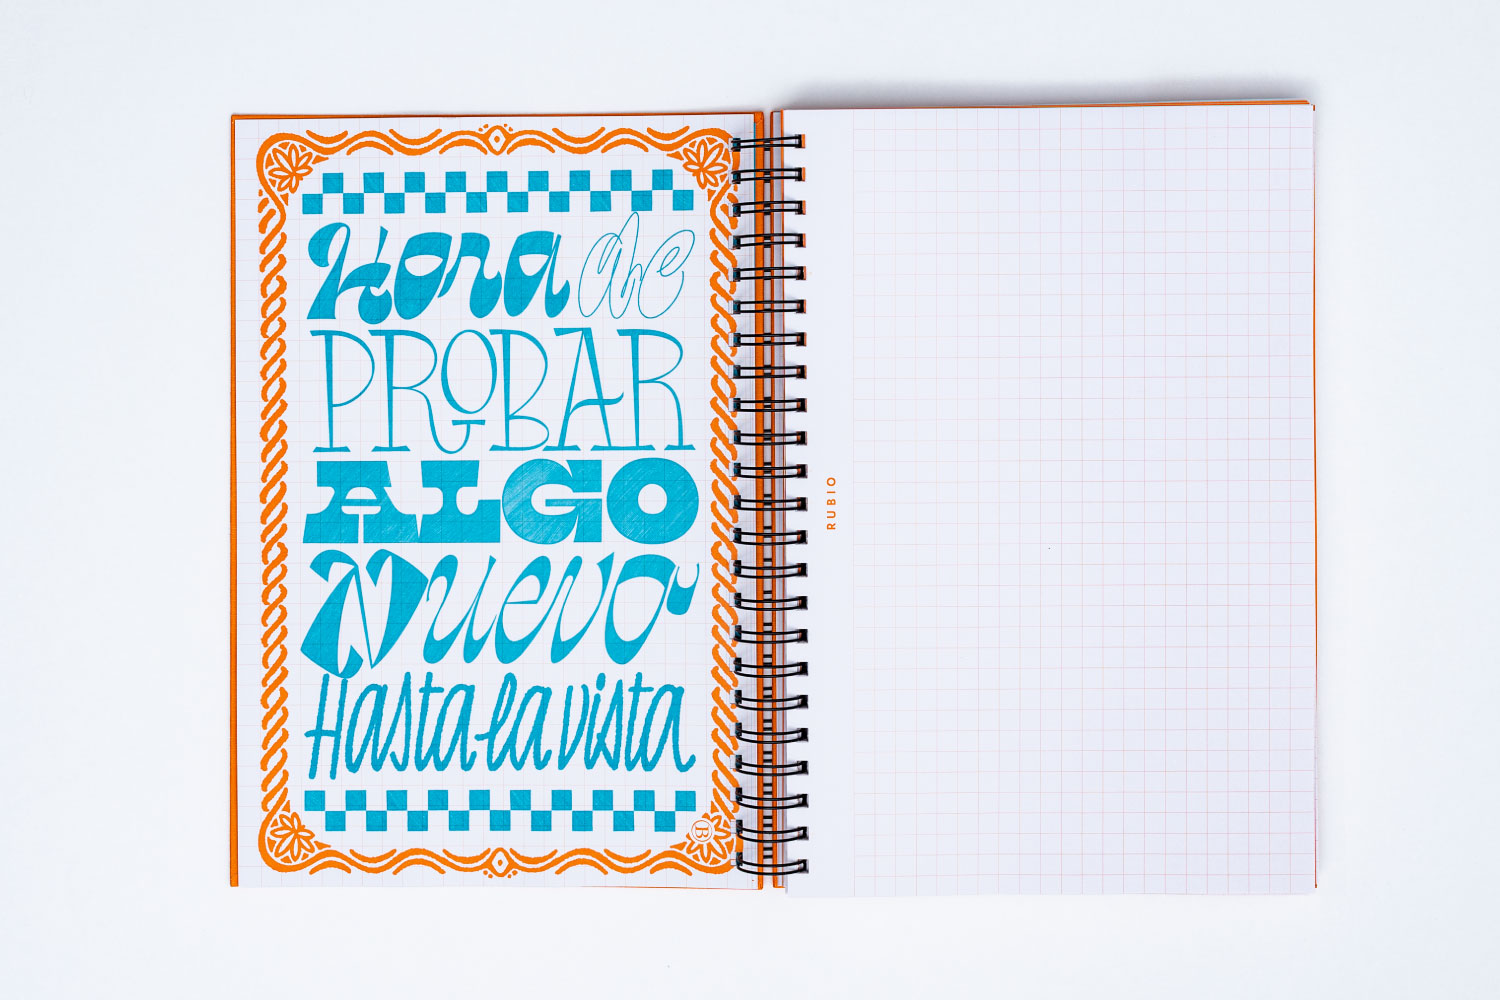 Hora de
PROBAR
ALGO
Nuevo
Hasta la vista
B
RUBIO